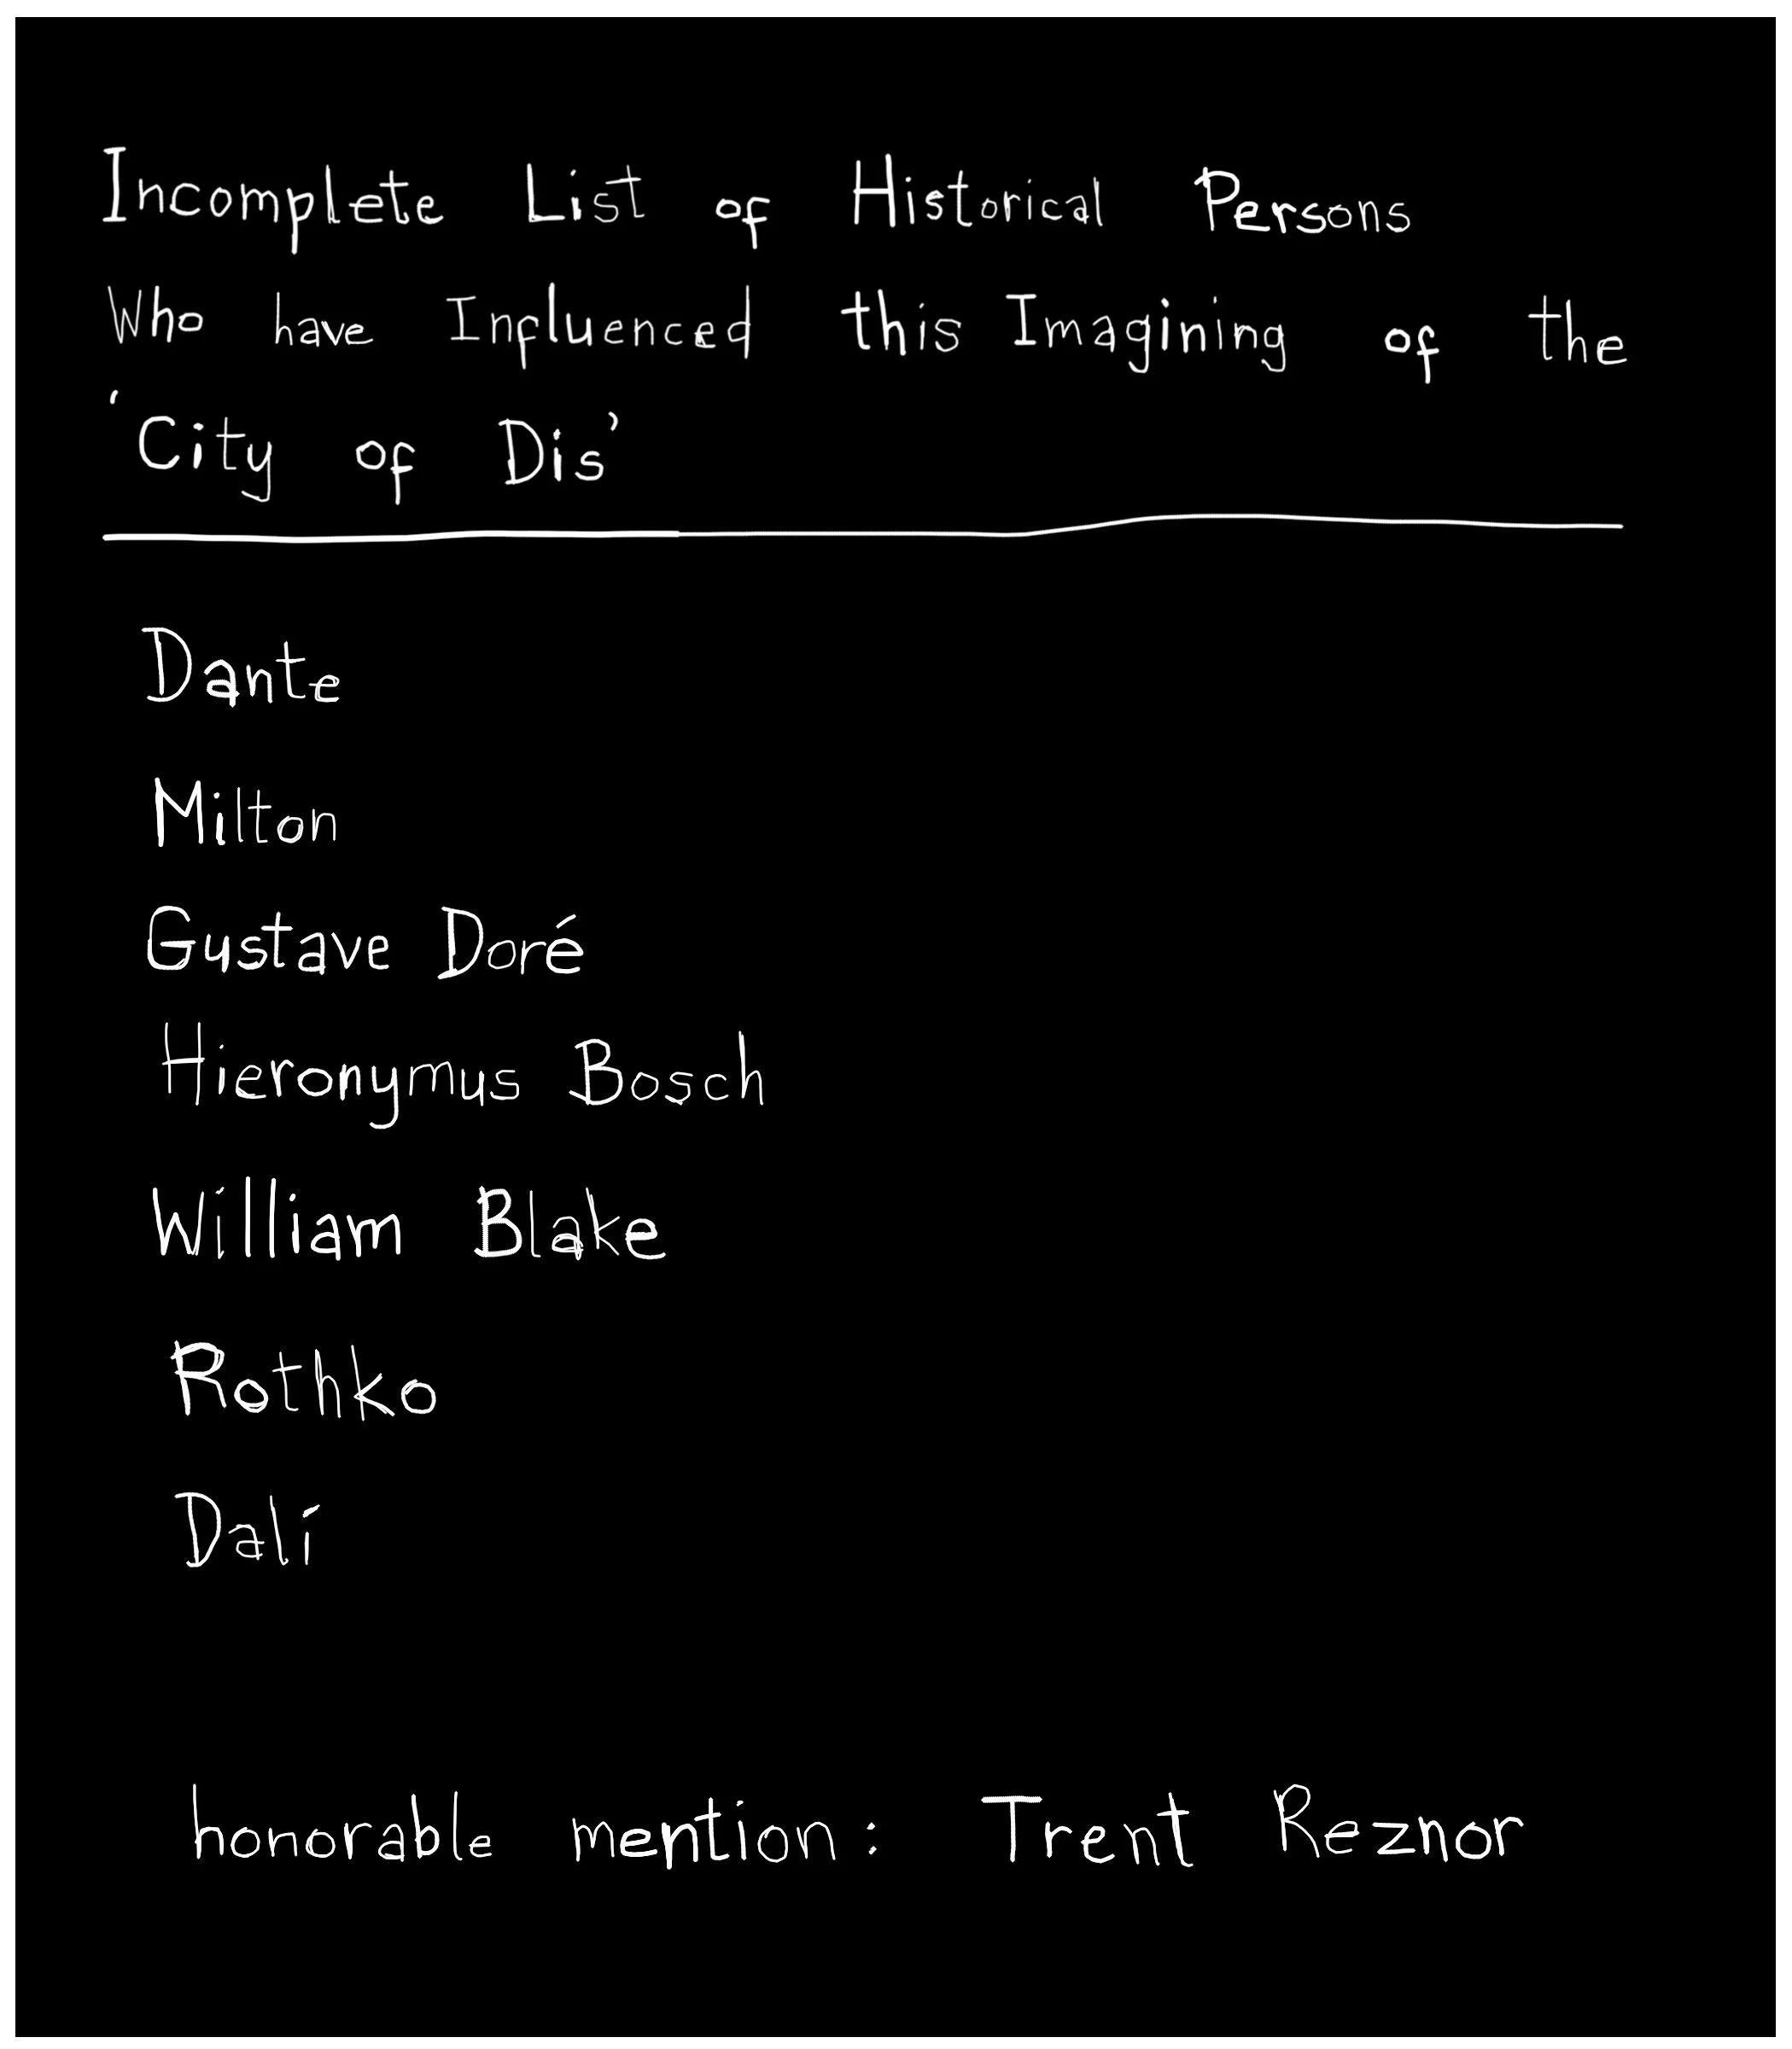 Incomplete List of Historical Persons
Who have Influenced this Imagining of the
'City of Dis'
Dante
Milton
Gustave Doré
Hieronymus Bosch
William Blake
Rothko
Dalí
honorable mention: Trent Reznor